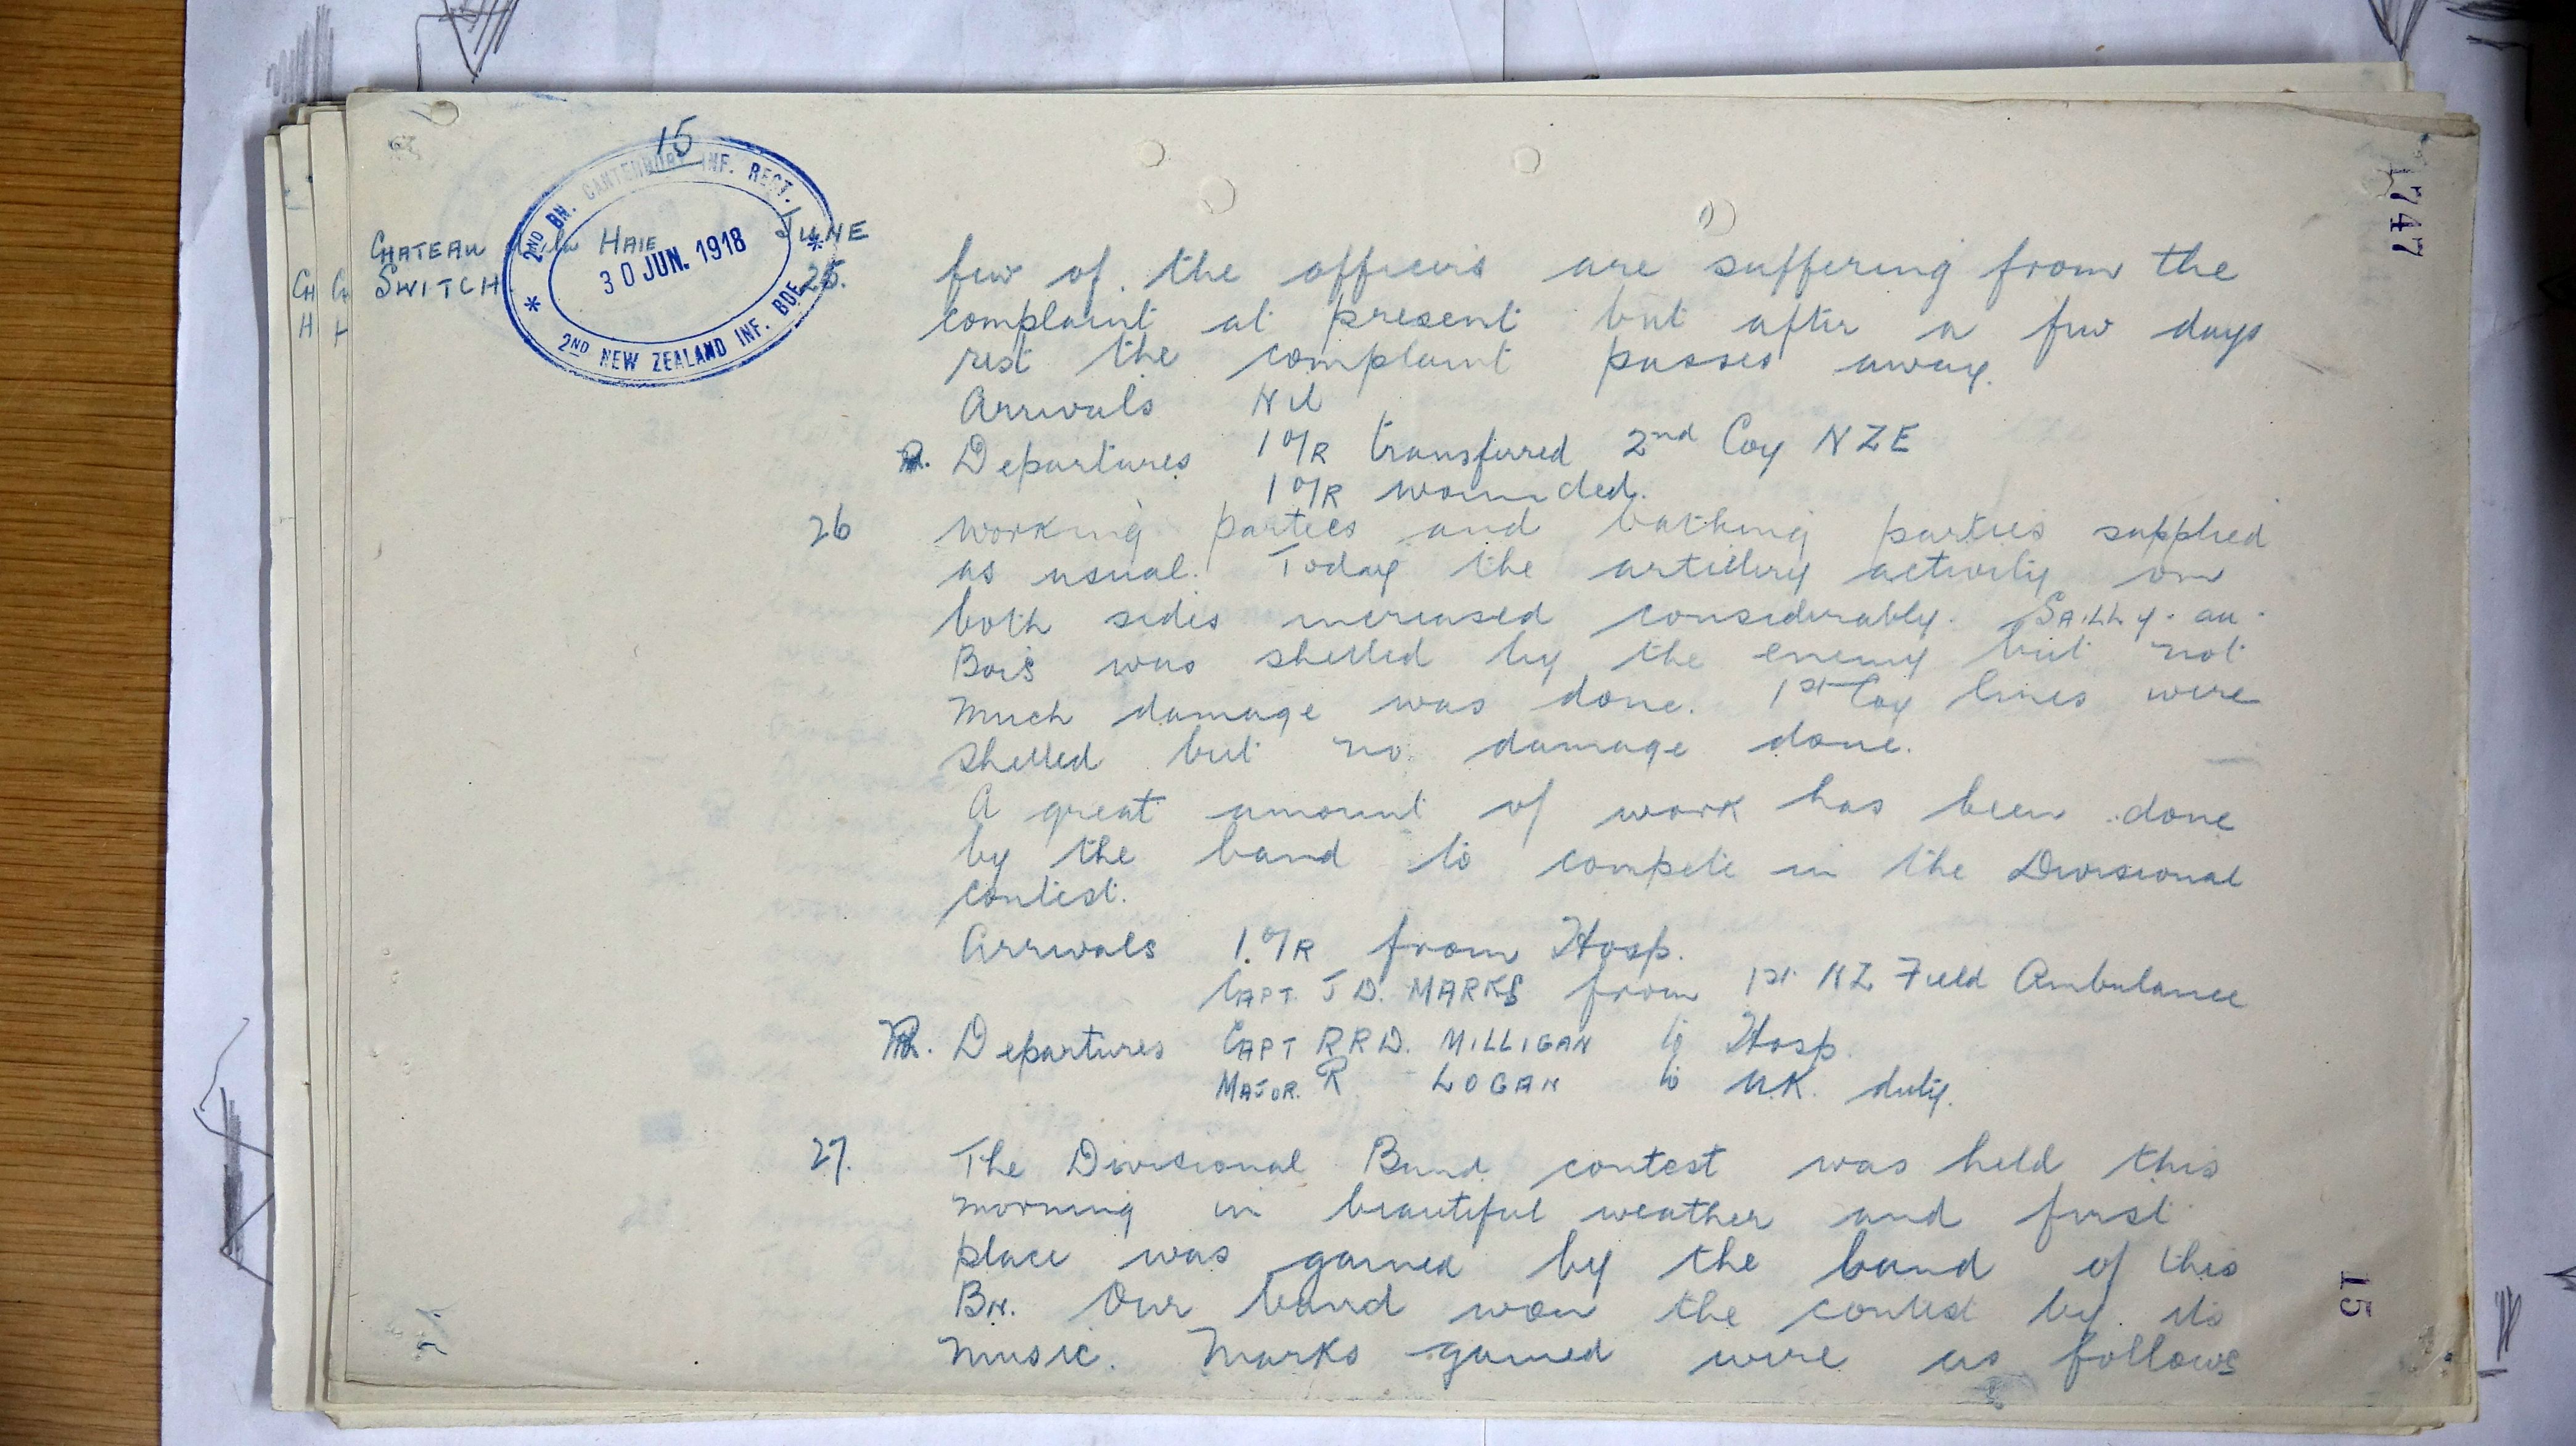 15
2ND BN. CANTERBURY INF. REGT.
30 JUN. 1918
2ND NEW ZEALAND INF. BDE
CHATEAU de la HAIE
SWITCH
JUNE
25. few of the officers are suffering from the
complaint at present but after a few days
rest the complaint passes away.
Arrivals Nil
Departures 1 O/R transferred 2nd Coy NZE
1 O/R wounded.
26 Working parties and bathing parties supplied
as usual. Today the artillery activity on
both sides increased considerably. SAILLY-au-
Bois was shelled by the enemy but not
much damage was done. 1st Coy lines were
shelled but no damage done.
A great amount of work has been done
by the band to compete in the Divisional
contest.
Arrivals 1 O/R from Hosp.
CAPT. J D. MARKS from 1st NZ Field Ambulance
Departures CAPT R R D. MILLIGAN to Hosp.
MAJOR. R LOGAN to U.K. duty.
27. The Divisional Band contest was held this
morning in beautiful weather and first
place was gained by the band of this
BN. Our band won the contest by its
music. Marks gained were as follows
1747
15
CH
H